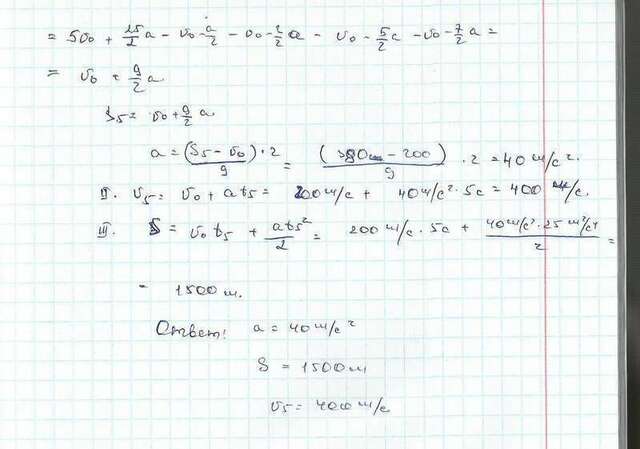 = 5v₀ + 25/2 a - v₀ - a/2 - v₀ - 3/2 a - v₀ - 5/2 a - v₀ - 7/2 a =
= v₀ + 9/2 a.
S₅ = v₀ + 9/2 a.
a = (S₅ - v₀)·2 / 9 = (380м - 200) / 9 · 2 = 40 м/с².
II. v₅ = v₀ + at₅ = 200 м/с + 40 м/с² · 5с = 400 м/с.
III. S = v₀t₅ + at₅²/2 = 200 м/с · 5с + 40 м/с² · 25 м²/с⁴ / 2 =
= 1500 м.
Ответ: a = 40 м/с²
S = 1500 м
v₅ = 400 м/с